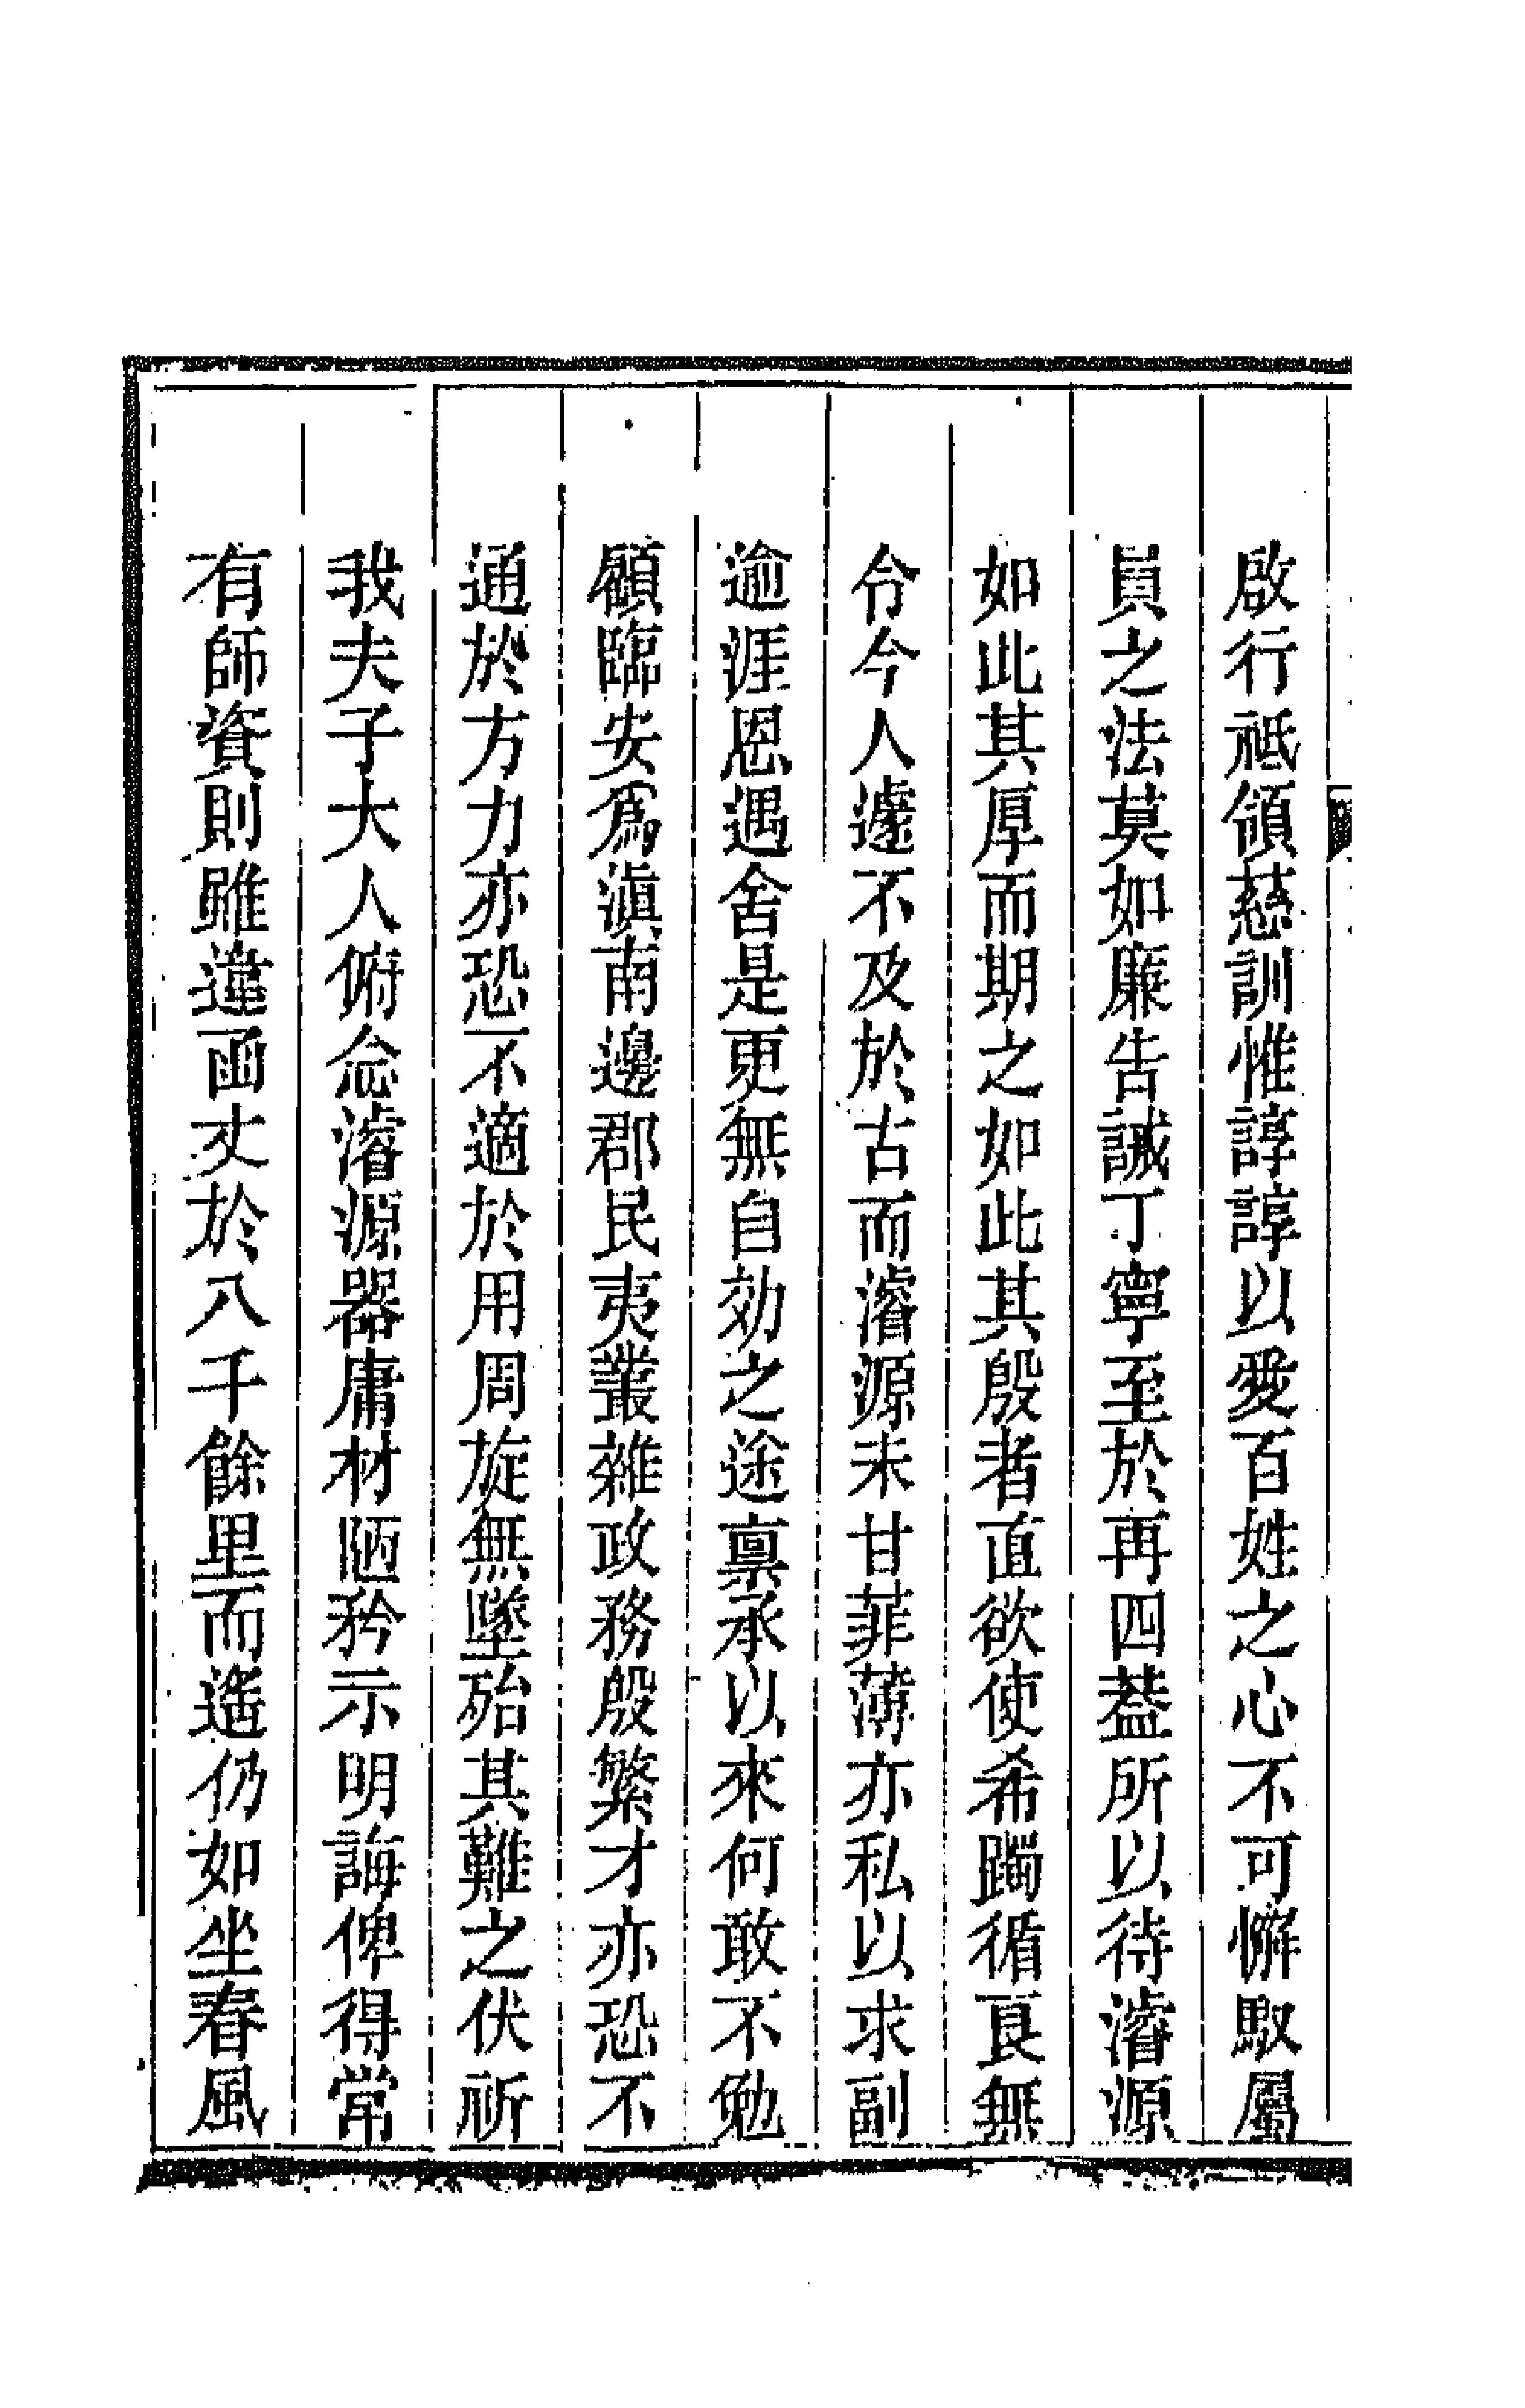 啟行祗領慈訓惟諄諄以愛百姓之心不可懈馭屬
員之法莫如廉告誡丁寧至於再四葢所以待濬源
如此其厚而期之如此其殷者直欲使希躅循良無
令今人遽不及於古而濬源未甘菲薄亦私以求副
逾涯恩遇舍是更無自効之途稟承以來何敢不勉
顧臨安爲滇南邊郡民夷叢雜政務殷繁才亦恐不
通於方力亦恐不適於用周旋無墜殆其難之伏祈
我夫子大人俯念濬源器庸材陋矜示明誨俾得常
有師資則雖違函丈於八千餘里而遙仍如坐春風